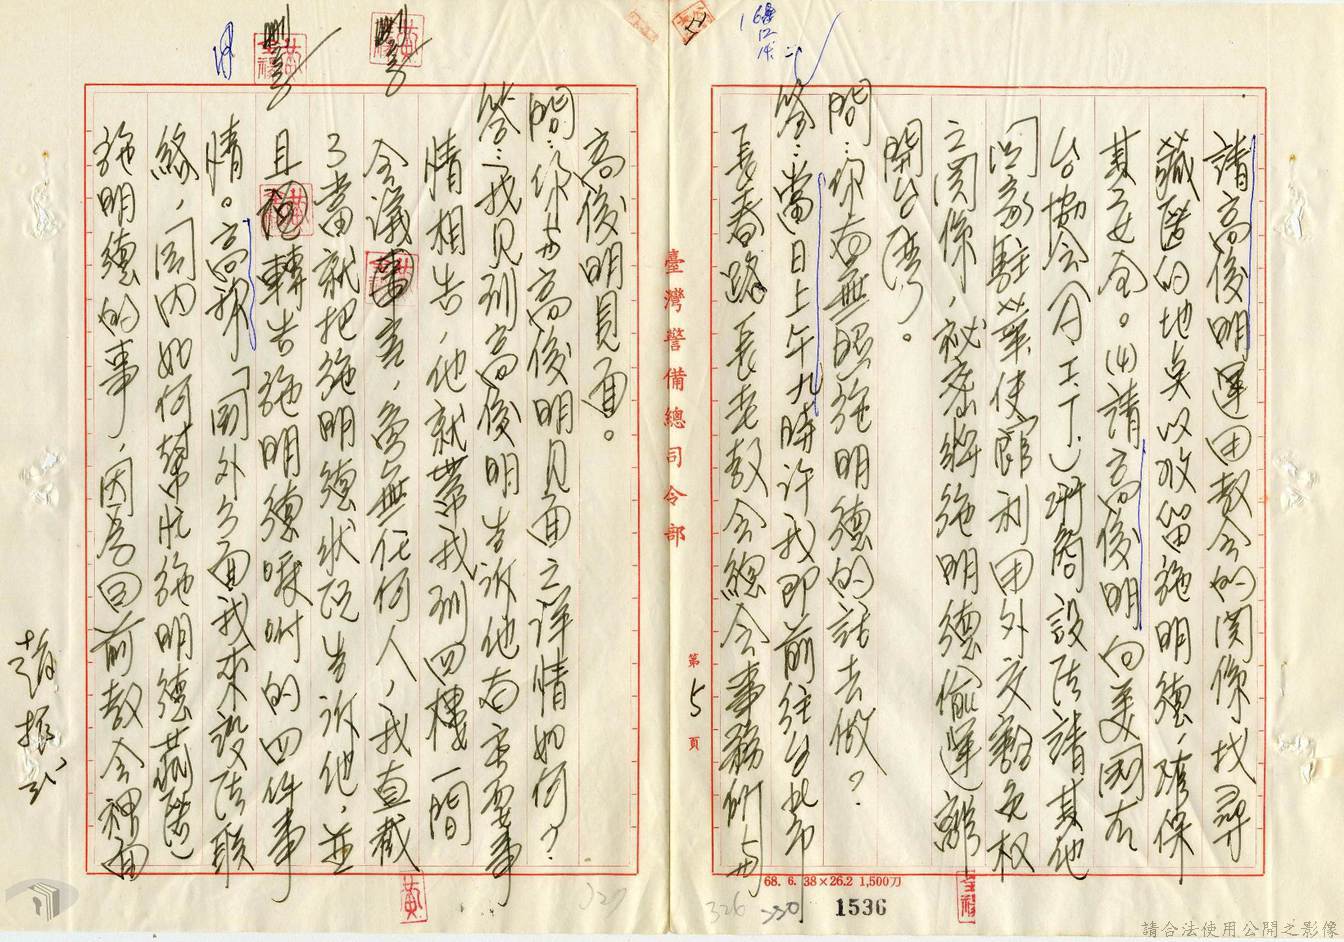 請高俊明運用教會的関係找尋
藏匿的地点以收留施明德，確保
其安全。(4)請高俊明向美國在
台協會(AIT)研商設法請其他
国家駐華使館利用外交豁免权
之関係，祕密將施明德偷運離
開台湾。
問：你有無照施明德的話去做？
答：當日上午九時许我即前往台北市
長春路長老教会總会事務所与
臺灣警備總司令部
第5頁
68. 6. 38×26.2 1,500刀
1536
326
330
高俊明見面。
問：你与高俊明見面之详情如何？
答：我見到高俊明告诉他有重要事
情相告，他就带我到四樓一間
会議室，旁無任何人，我直截
了當就把施明德状况告诉他，並
且轉告施明德吩咐的四件事
情。高称「国外方面我來設法联
絡，国内如何幫忙施明德藏匿
施明德的事，因為目前教会裡面
327
趙振
請合法使用公開之影像